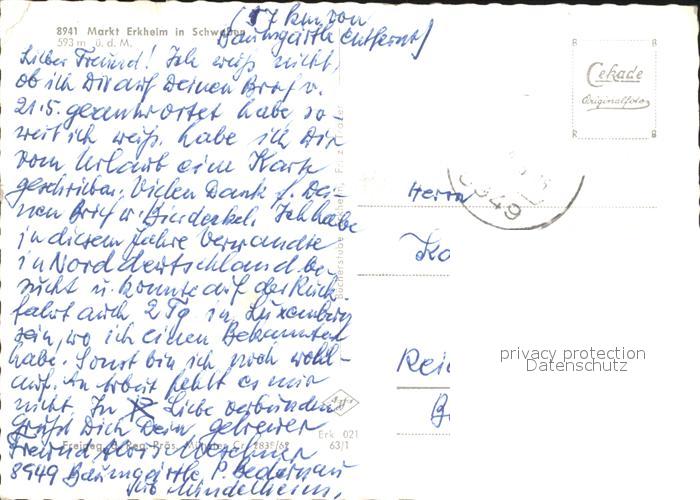 (17 km von
Baumgärtle entfernt)
8941 Markt Erkheim in Schwaben
593 m ü. d. M.
Lieber Freund! Ich weiß nicht,
ob ich Dir auf Deinen Brief v.
21.5. geantwortet habe, so-
weit ich weiß, habe ich Dir
vom Urlaub eine Karte
geschrieben. Vielen Dank f. Dei-
nen Brief u. Bierdeckel. Ich habe
in diesem Jahre Verwandte
in Norddeutschland be-
sucht u. konnte auf der Rück-
fahrt auch 2 Tg in Luxemburg
sein, wo ich einen Bekannten
habe. Sonst bin ich noch wohl-
auf. An Arbeit fehlt es mir
nicht. In Liebe verbunden
grüßt Dich Dein getreuer
Freund
8949 Baumgärtle P. Bedernau
üb. Mindelheim.
Cekade
Originalfoto
8949
Herrn
Ko
Rei
B
privacy protection
Datenschutz
Agfa
Erk 021
63/1
Freigeg. d. Reg. Präs. Münster Cr. 2835/62